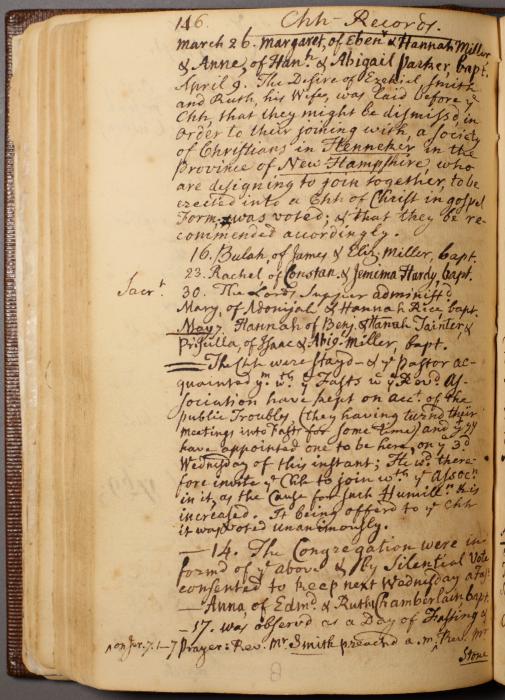 146. Chh Records.
March 26. Margaret, of Ebenr & Hannah Miller
& Anne, of Hanh & Abigail Parker, bapt.
April 9. The Desire of Ezekiel Smith
and Ruth, his Wife, was laid before ye
Chh that they might be dismissd, in
order to their joining with, a Society
of Christians in Henneker in the
Province of New Hampshire, who
are designing to join together, to be
erected into a Chh of Christ in gospel
Form, was voted; & that they be re-
commended accordingly.
16. Bulah, of James & Eliz. Miller, bapt.
23. Rachel of Constan. & Jemima Hardy, bapt.
Sacrt. 30. The Lords Supper administrd
Mary, of Adonijah & Hannah Rice bapt.
May 7. Hannah of Benj. & Hanah Tainter, &
Prisulla, of Isaac & Abig. Miller, bapt.
The Chh were stayd - & ye Pastor ac-
quainted ym wth ye Fasts wc ye Revd As-
sociation have kept on acct. of the
public Troubles (they having turnd their
meetings into Fasts for some time) and yt yy
have appointed one to be here, on ye 3d
Wednesday of this instant; He wd. there-
fore invite ye Chh to join wth. ye Assocn.
in it, as the Cause for such Humiln. is
increased. It being offerd to ye Chh
it was voted unanimously.
— 14. The Congregation were in-
formd of ye above & by Silential Vote
consented to keep next Wednesday a Fast
— Anna, of Edmd. & Ruth Chamberlain bapt.
— 17. was observd as a Day of Fasting &
Prayer: Revr. Mr Smith preachd a.m. Revr. Mr
^ on Jer. 7. 1-7
Stone